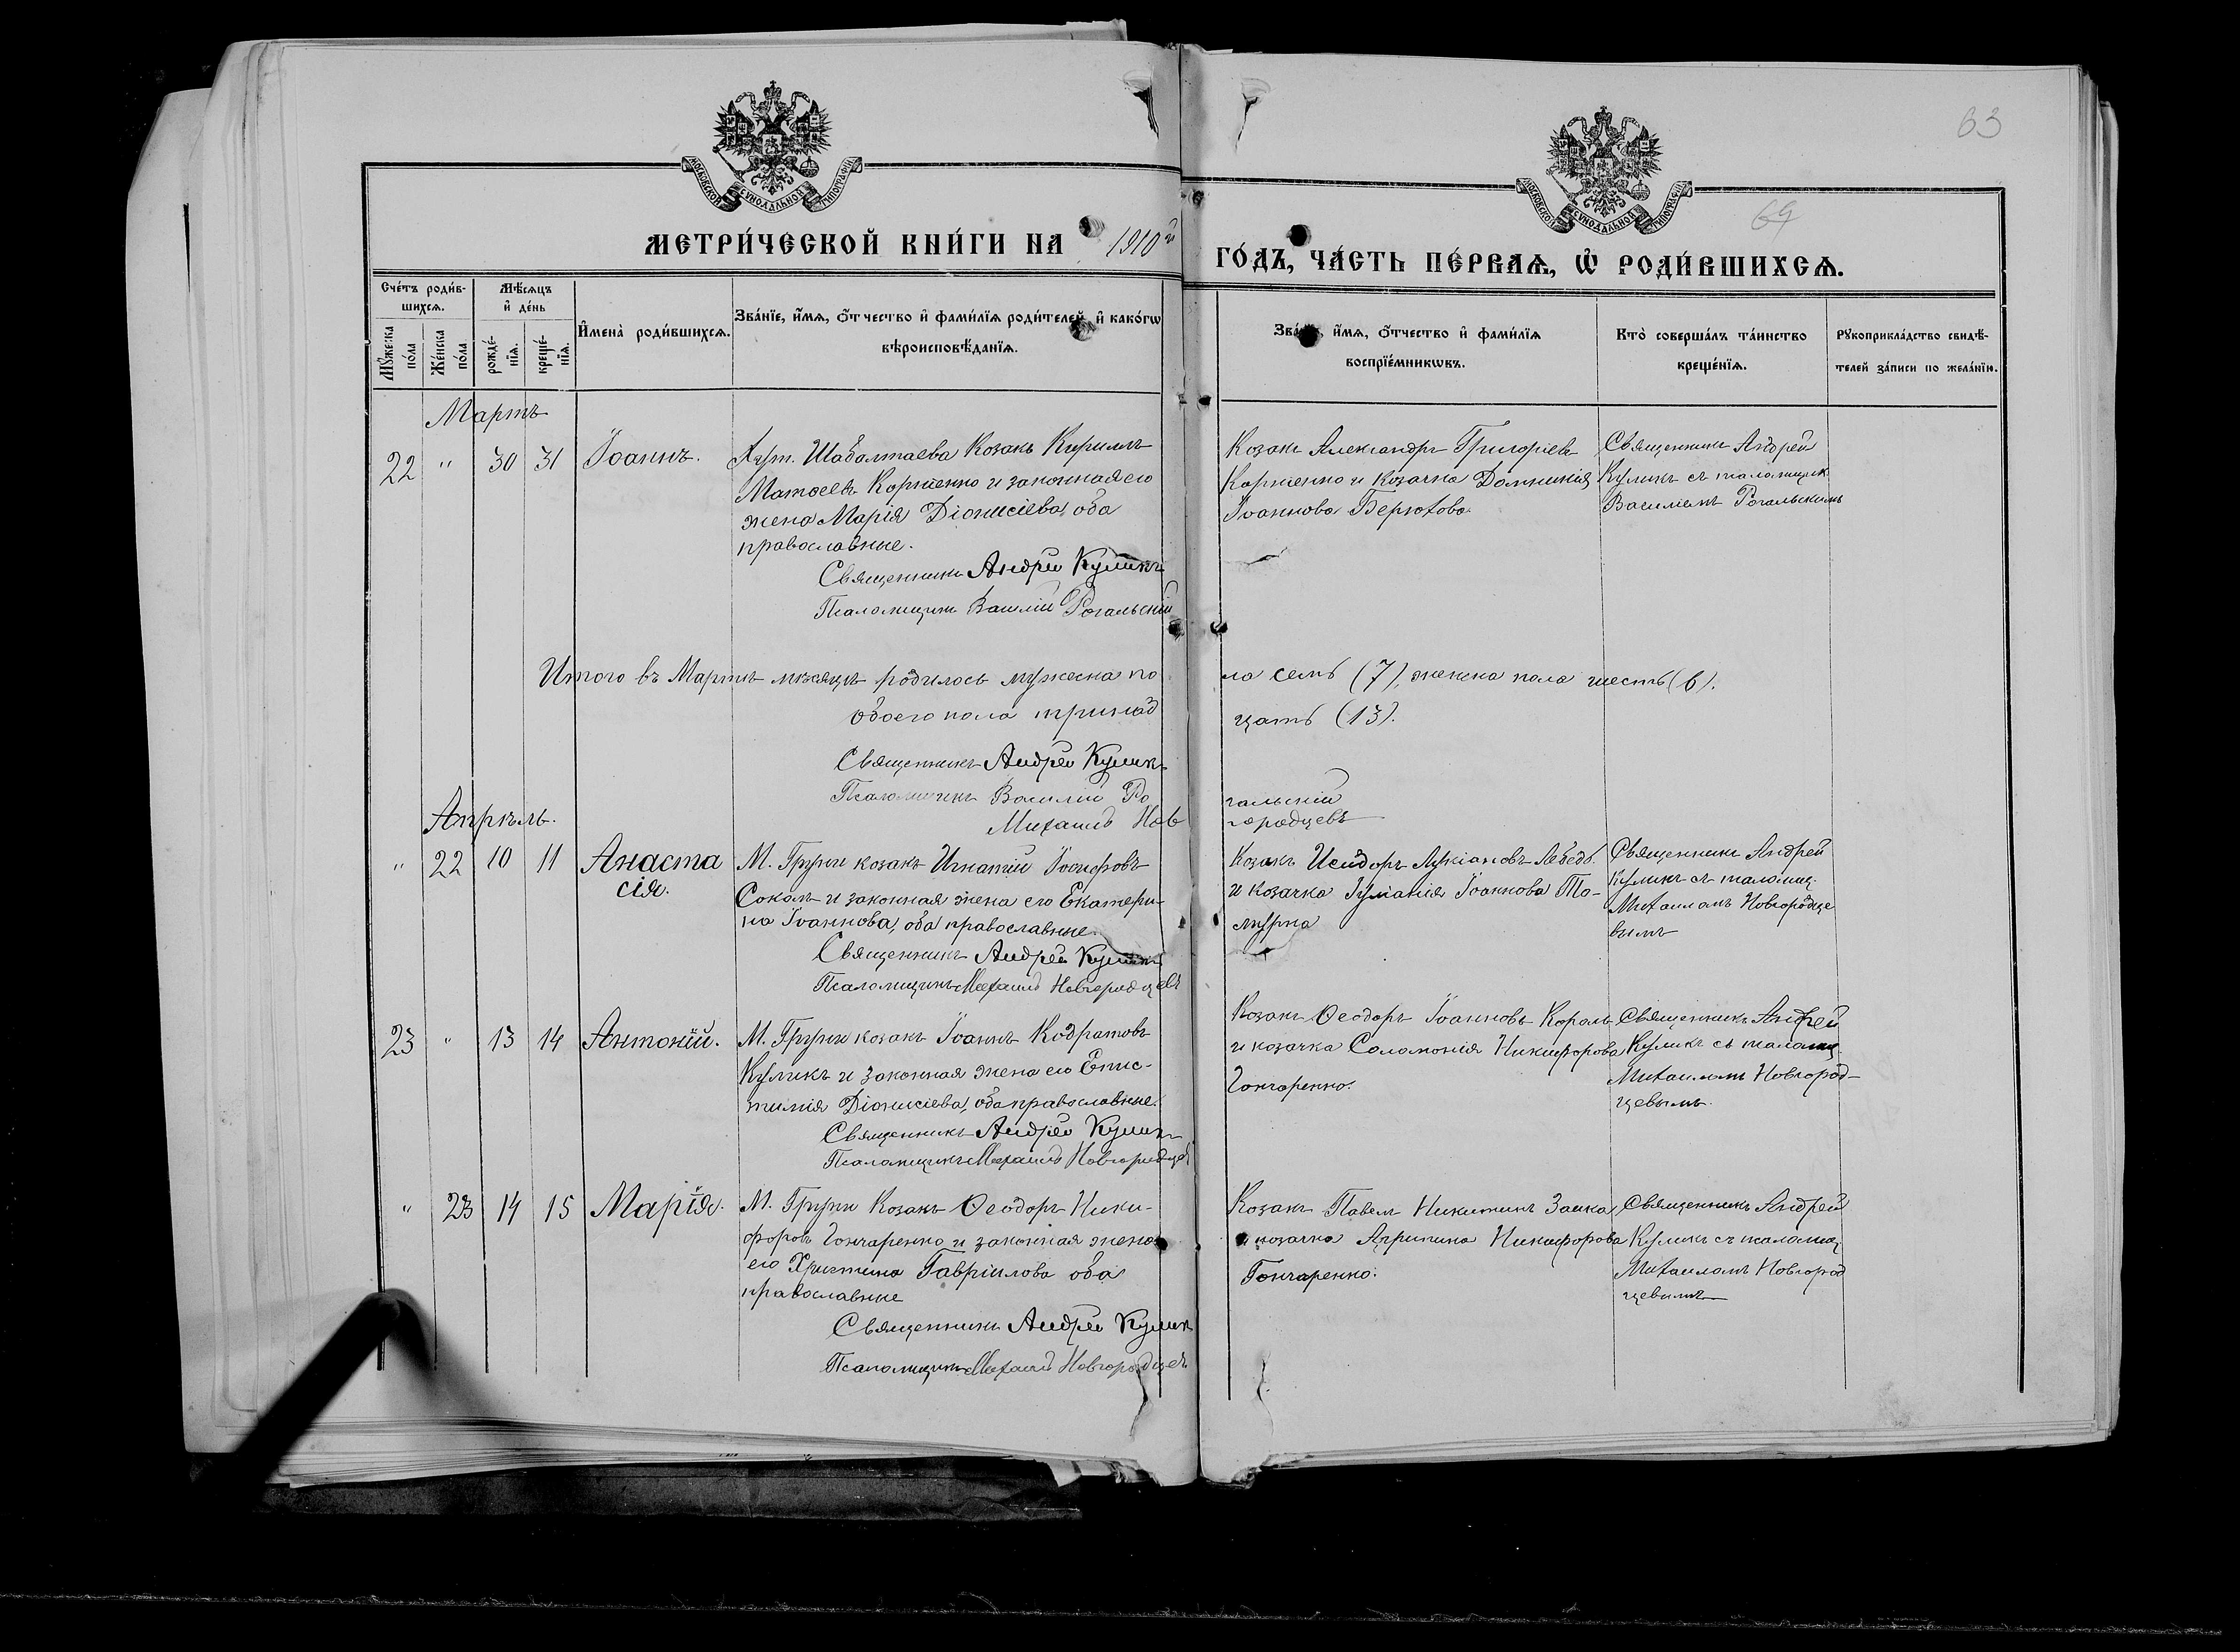 63
МОСКОВСКОЙ СѴНОДАЛЬНОЙ ТИПОГРАФІИ
МОСКОВСКОЙ СѴНОДАЛЬНОЙ ТИПОГРАФІИ
64
МЕТРИ́ЧЕСКОЙ КНИ́ГИ НА 1910й ГО́ДЪ, ЧА́СТЬ ПЕ́РВАѦ, Ѽ РОДИ́ВШИХСѦ.
Сче́тъ роди́в-
шихсѧ.
Мꙋ́жеска по́ла
Же́нска по́ла
Мѣ́сѧцъ
и҆ де́нь
рожде́-
нїѧ.
креще́-
нїѧ.
И҆мена̀ роди́вшихсѧ.
Зва́нїе, и҆́мѧ, ѻ҆́тчество и҆ фами́лїѧ роди́телей, и҆ како́гѡ
вѣроисповѣ́данїѧ.
Зва́нїе, и҆́мѧ, ѻ҆́тчество и҆ фами́лїѧ
воспрїе́мникѡвъ.
Кто̀ соверша́лъ та́инство
креще́нїѧ.
Рꙋкоприкла́дство свидѣ́-
телей за́писи по жела́нїю.
Мартъ
22 " 30 31 Іоаннъ.
Хут. Шаболтаева Козакъ Кириллъ
Матѳеевъ Корніенко и законная его
жена Марія Діонисіева, оба
православные.
Священникъ Андрей Куликъ
Псаломщикъ Василій Рогальскій
Козакъ Александръ Григоріевъ
Корніенко и козачка Домникія
Іоаннова
Священникъ Андрей
Куликъ съ псаломщик.
Василіемъ Рогальскимъ
Итого въ Мартѣ мѣсяцѣ родилось мужеска по
ла семь (7), женска пола шесть (6).
обоего пола тринад
цать (13).
Священникъ Андрей Куликъ
Псаломщикъ Василій Ро
гальскій
Михаилъ Нов
городцевъ
Апрѣль.
" 22 10 11 Анаста
сія.
М. Груни козакъ Игнатій Іосифовъ
Соколъ и законная жена его Екатери-
на Іоаннова, оба православные.
Священникъ Андрей Куликъ
Псаломщикъ Михаилъ Новгородцевъ
Козакъ Исидоръ Лукіановъ Лебедь
и козачка Іоаннова
Священникъ Андрей
Куликъ съ псаломщ.
Михаиломъ Новгородце
вымъ
23 " 13 14 Антоній.
М. Груни козакъ Іоаннъ Кодратовъ
Куликъ и законная жена его Епис-
тимія Діонисіева, оба православные.
Священникъ Андрей Куликъ
Псаломщикъ Михаилъ Новгородцев
Козакъ Ѳеодоръ Іоанновъ Король
и козачка Соломонія Никифорова
Гончаренко.
Священникъ Андрей
Куликъ съ псаломщ.
Михаиломъ Новгород-
цевымъ.
" 23 14 15 Марія.
М. Груни Козакъ Ѳеодоръ Ники-
форовъ Гончаренко и законная жена
его Христина Гавріилова оба
православные
Священникъ Андрей Куликъ
Псаломщикъ Михаилъ Новгородцевъ
Козакъ Павелъ Никитинъ Заика
и козачка Агрипина Никифорова
Гончаренко.
Священникъ Андрей
Куликъ съ псаломщ.
Михаиломъ Новгород
цевымъ